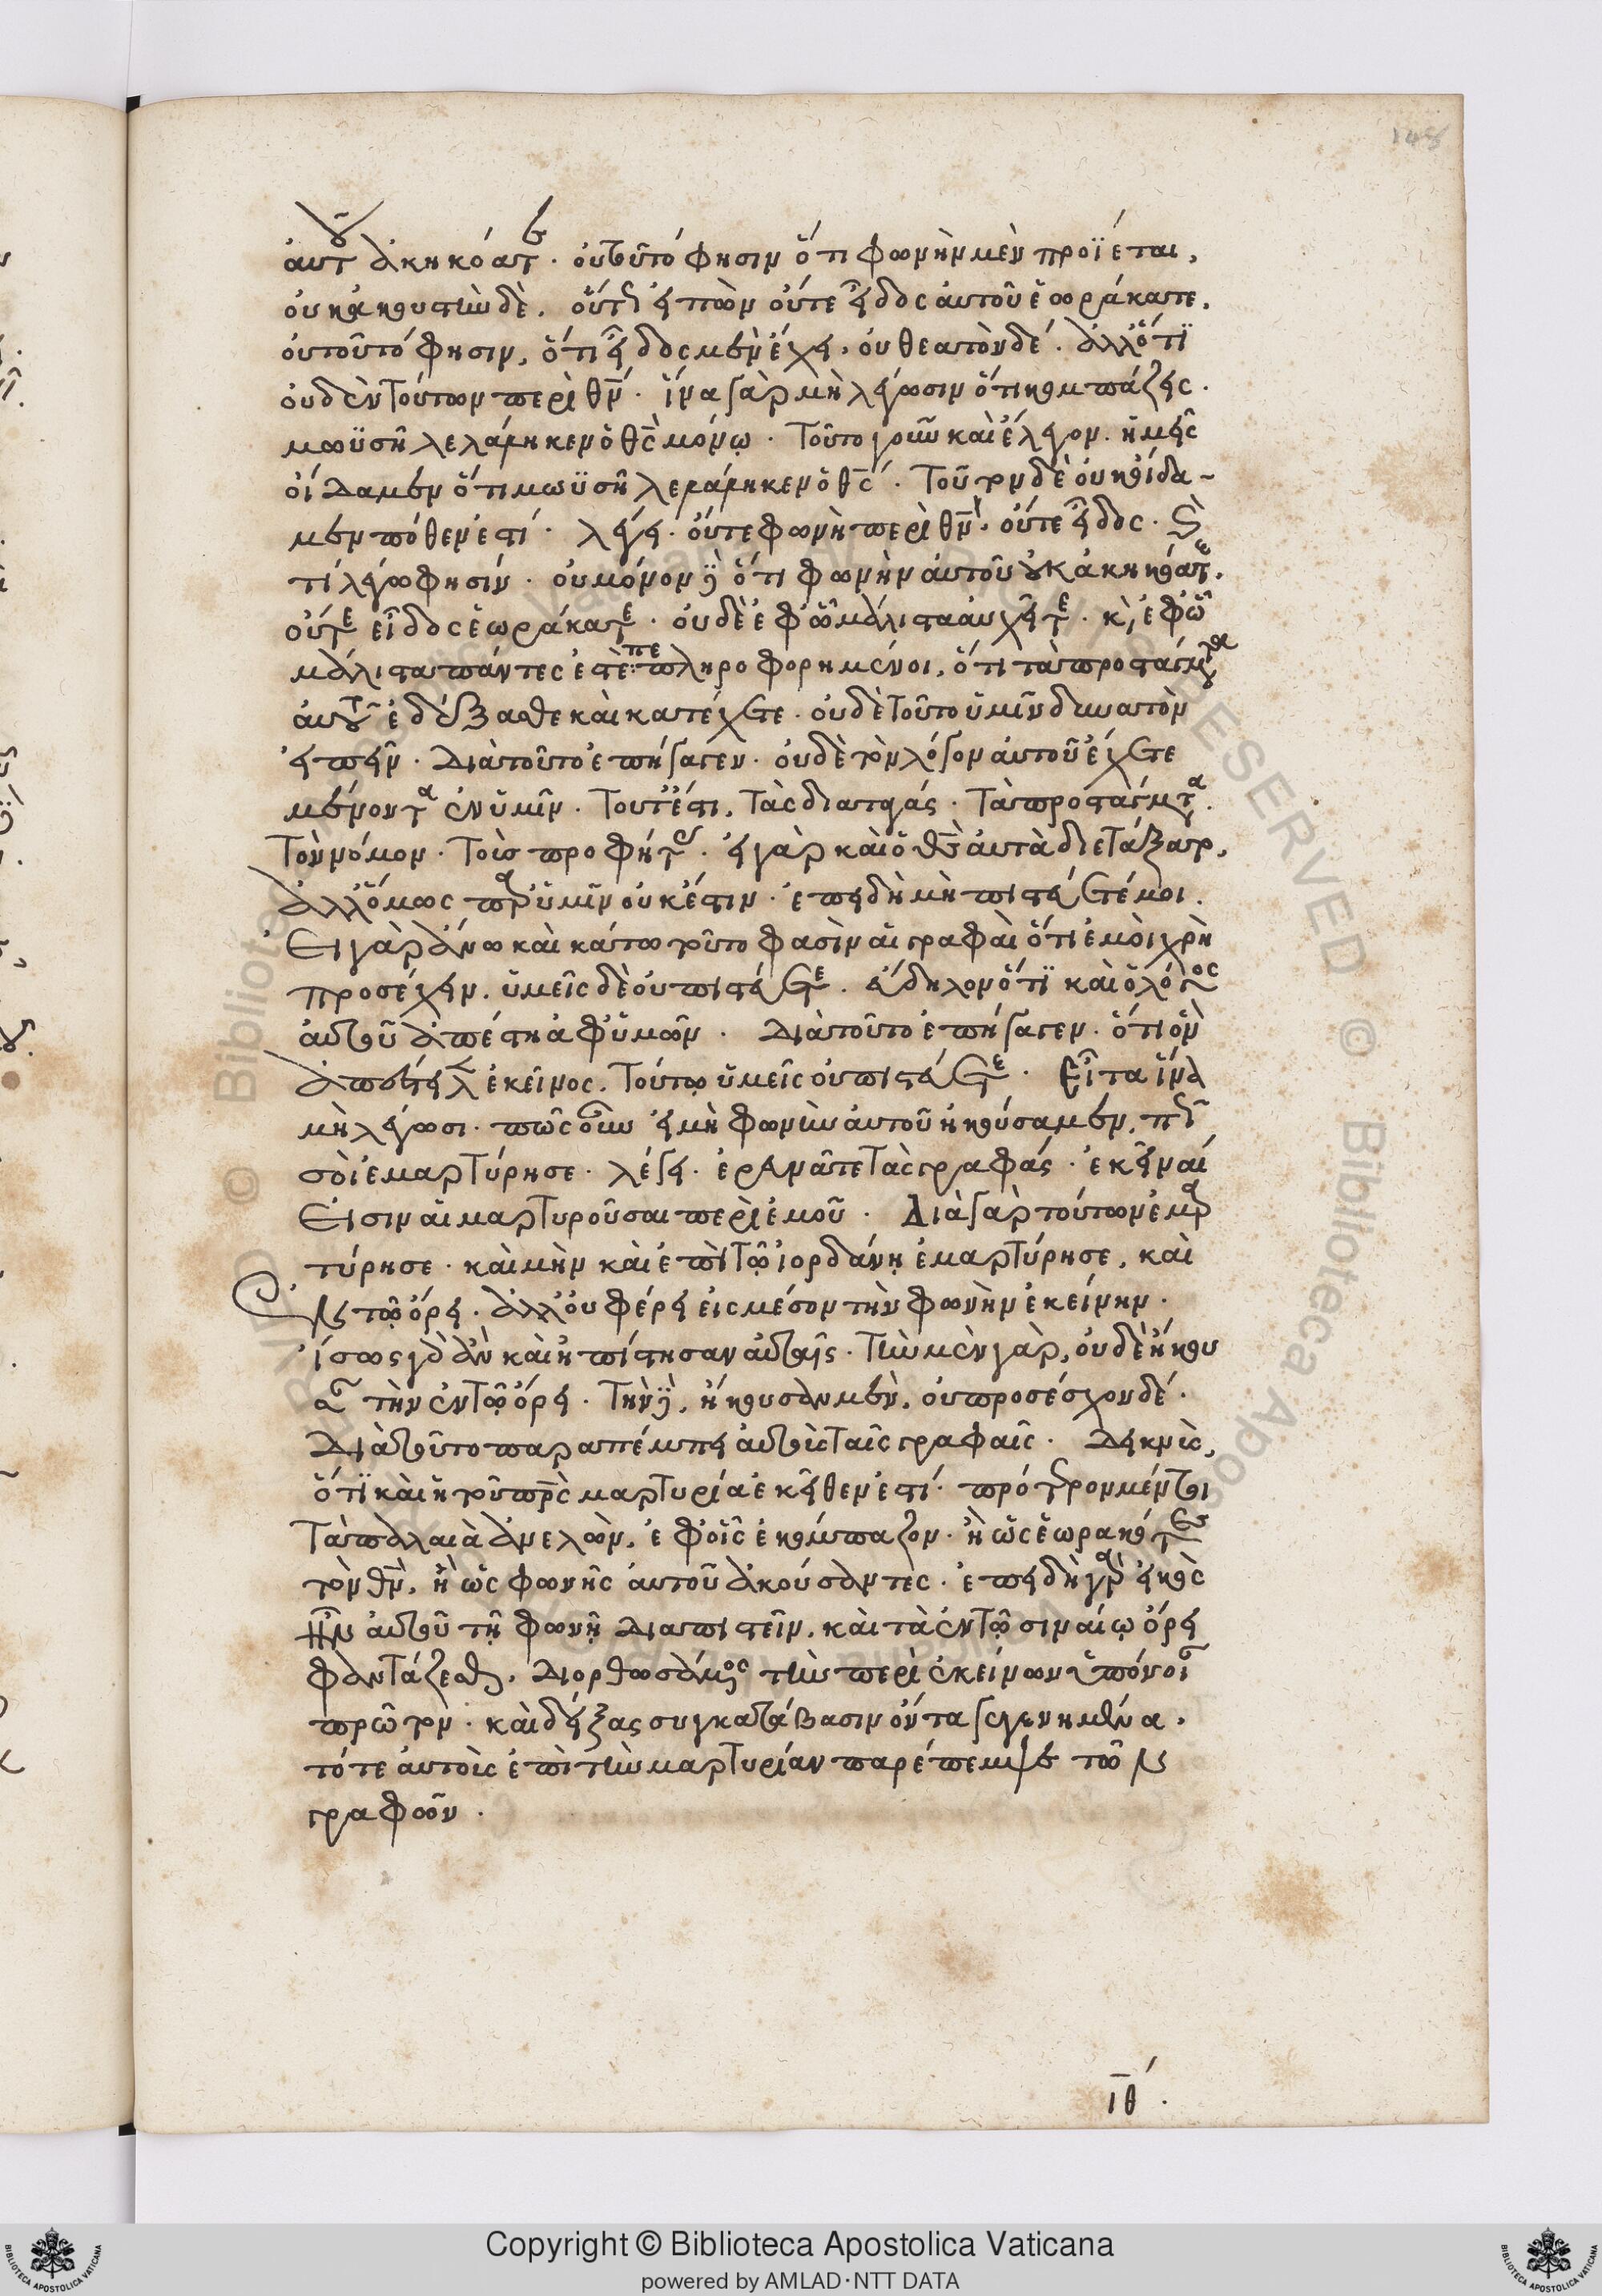 148
αὐτοῦ ἀκηκόατε. οὐ τοῦτό φησιν ὅτι φωνὴν μὲν προΐεται,
οὐκ ἀκουστὴν δὲ. οὔτε εἰπὼν οὔτε εἶδος αὐτοῦ ἑωράκατε,
οὐ τοῦτό φησιν, ὅτι εἶδος μὲν ἔχει, οὐ θεατὸν δέ. ἀλλ' ὅτι
οὐδὲν τούτων περὶ θν. ἵνα γὰρ μὴ λέγωσιν ὅτι κομπάζεις.
μωϋσῆ λελάληκεν ὁ θς μόνῳ. τοῦτο γοῦν καὶ ἔλεγον. ἡμεῖς
οἴδαμεν ὅτι μωϋσῆ λελάληκεν ὁ θς. τοῦτον δὲ οὐκ οἴδα-
μεν πόθεν ἐστί. λέγει. οὔτε φωνὴ περὶ θν. οὔτε εἶδος. καὶ
τί λέγω φησίν. οὐ μόνον ὅτι φωνὴν αὐτοῦ οὐκ ἀκηκόατε.
οὔτε εἶδος ἑωράκατε. οὐδὲ ἐφ' ᾧ μάλιστα αὐχεῖτε. καὶ ἐφ' ᾧ
μάλιστα πάντες ἐστὲ πεπληροφορημένοι, ὅτι τὰ προστάγματα
αὐτοῦ ἐδέξασθε καὶ κατέχετε. οὐδὲ τοῦτο ὑμῖν δυνατὸν
εἰπεῖν. Διὰ τοῦτο ἐπήγαγεν. οὐδὲ τὸν λόγον αὐτοῦ ἔχετε
μένοντα ἐν ὑμῖν. τουτέστι, τὰς διαταγάς. τὰ προστάγματα.
τὸν νόμον. τοὺς προφήτας. εἰ γὰρ καὶ ὁ θς αὐτὰ διετάξατο,
ἀλλ' ὅμως παρ' ὑμῖν οὐκ ἔστιν. ἐπειδὴ μὴ πιστεύετέ μοι.
Εἰ γὰρ ἄνω καὶ κάτω τοῦτο φασὶν αἱ γραφαὶ ὅτι ἐμοὶ χρὴ
προσέχειν. ὑμεῖς δὲ οὐ πιστεύετε. εὔδηλον ὅτι καὶ ὁ λόγος
αὐτοῦ ἀπέστη ἀφ' ὑμῶν. Διὰ τοῦτο ἐπήγαγεν. ὅτι ὃν
ἀπέστειλεν ἐκεῖνος, τούτῳ ὑμεῖς οὐ πιστεύετε. Εἶτα ἵνα
μὴ λέγωσι. πῶς οὖν εἰ μὴ φωνὴν αὐτοῦ ἠκούσαμεν,
σοὶ ἐμαρτύρησε. λέγει. ἐρευνᾶτε τὰς γραφάς. ἐκεῖναί
εἰσιν αἱ μαρτυροῦσαι περὶ ἐμοῦ. Διὰ γὰρ τούτων ἐμαρ
τύρησε. καὶ μὴν καὶ ἐπὶ τῷ ἰορδάνῃ ἐμαρτύρησε, καὶ
ἐν τῷ ὄρει. ἀλλ' οὐ φέρει εἰς μέσον τὴν φωνὴν ἐκείνην.
ἴσως γὰρ ἂν καὶ ἠπίστησαν αὐταῖς. τὴν μὲν γὰρ, οὐδὲ ἤκου
σαν τὴν ἐν τῷ ὄρει. τὴν δὲ, ἤκουσαν μὲν, οὐ προσέσχον δέ.
Διὰ τοῦτο παραπέμπει αὐτοὺς ταῖς γραφαῖς. Δεικνὺς,
ὅτι καὶ ἡ τοῦ πρς μαρτυρία ἐκεῖθεν ἐστί. πρότερον μέντοι
τὰ παλαιὰ ἀνελὼν, ἐφ' οἷς ἐκόμπαζον. ἢ ὡς ἑωρακότες
τὸν θν, ἢ ὡς φωνῆς αὐτοῦ ἀκούσαντες. ἐπειδὴ γὰρ εἰκὸς
ἦν αὐτοῦ τῇ φωνῇ διαπιστεῖν, καὶ τὰ ἐν τῷ σιναίῳ ὄρει
φαντάζεσθαι, διορθωσάμενος τὴν περὶ ἐκείνων ὑπόνοιαν
πρῶτον. καὶ δείξας συγκατάβασιν ὄντα γεγενημένα,
τότε αὐτοὺς ἐπὶ τὴν μαρτυρίαν παρέπεμψε τῶν
γραφῶν.
ιθ'.
© Biblioteca Apostolica Vaticana
Copyright © Biblioteca Apostolica Vaticana
powered by AMLAD·NTT DATA